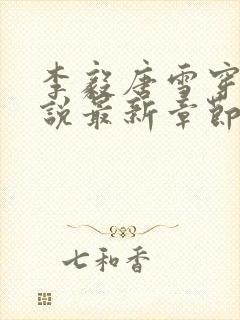 李毅唐雪穿
说最新章节
七和香